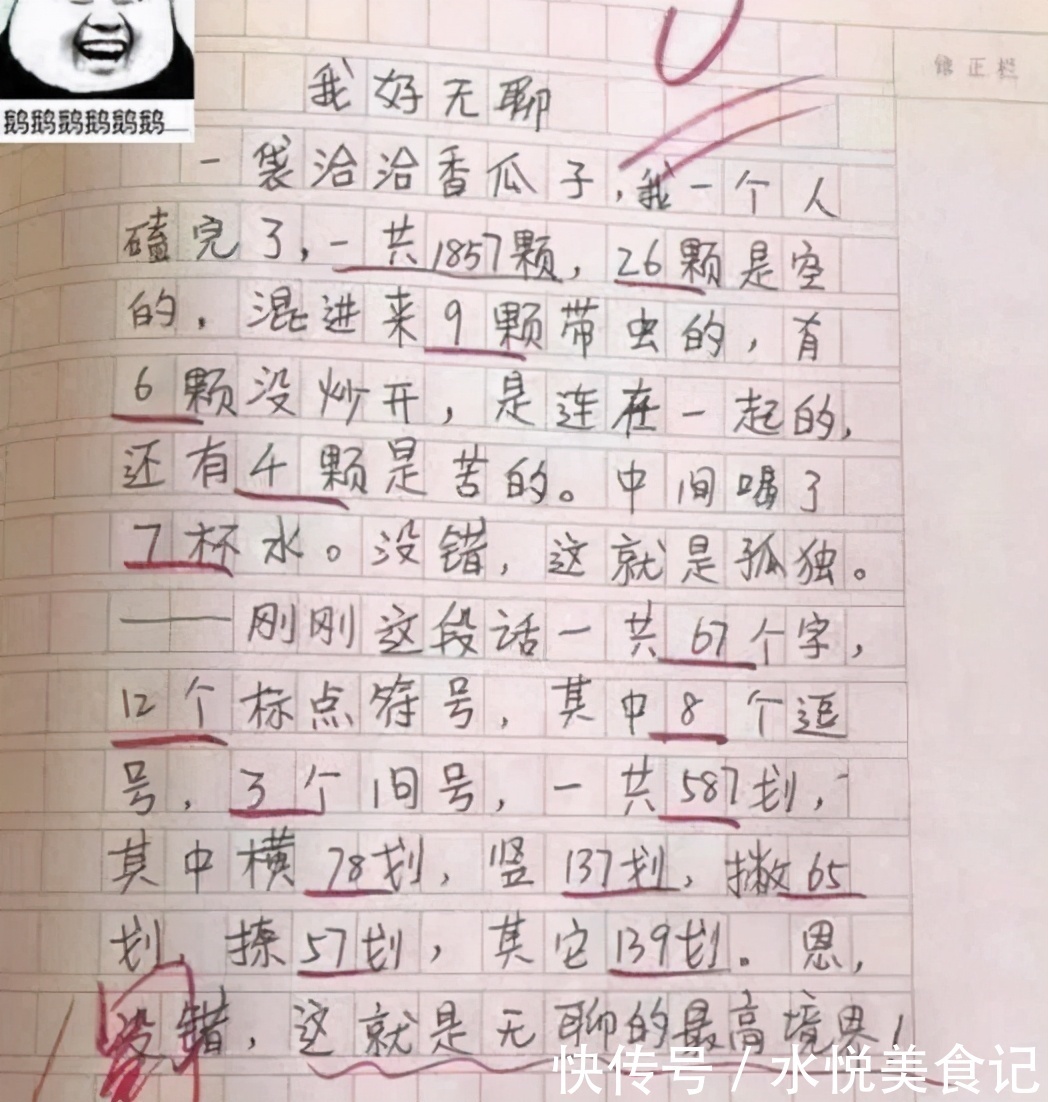 鹅鹅鹅鹅鹅鹅
修正栏
我好无聊
一袋洽洽香瓜子,我一个人
磕完了,一共1857颗,26颗是空
的,混进来9颗带虫的,有
6颗没炒开,是连在一起的,
还有4颗是苦的。中间喝了
7杯水。没错,这就是孤独。
——刚刚这段话一共67个字,
12个标点符号,其中8个逗
号,3个间号,一共587划,
其中横78划,竖137划,撇65
划,捺57划,其它139划。恩,
没错,这就是无聊的最高境界!
快传号/水悦美食记